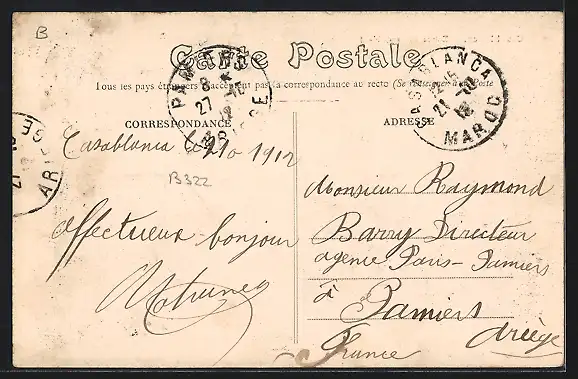 B
Carte Postale
Tous les pays étrangers n'acceptent pas la correspondance au recto (Se renseigner à la Poste
CORRESPONDANCE
ADRESSE
PAMIERS
8
27 -10
12
ARIEGE
CASABLANCA
12-15
21 -10
12
MAROC
ARIEGE
Casablanca le 21 10 1912
B322
affectueux bonjour
Monsieur Raymond
Barry Directeur
agence Paris-Pamiers
à Pamiers
Ariège
France